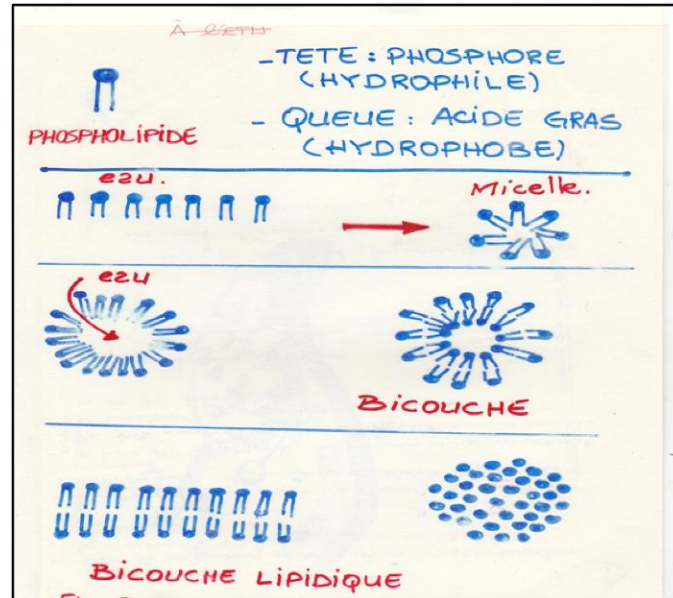 - TETE : PHOSPHORE
(HYDROPHILE)
PHOSPHOLIPIDE
- QUEUE : ACIDE GRAS
(HYDROPHOBE)
eau.
Micelle.
eau
BICOUCHE
BICOUCHE LIPIDIQUE